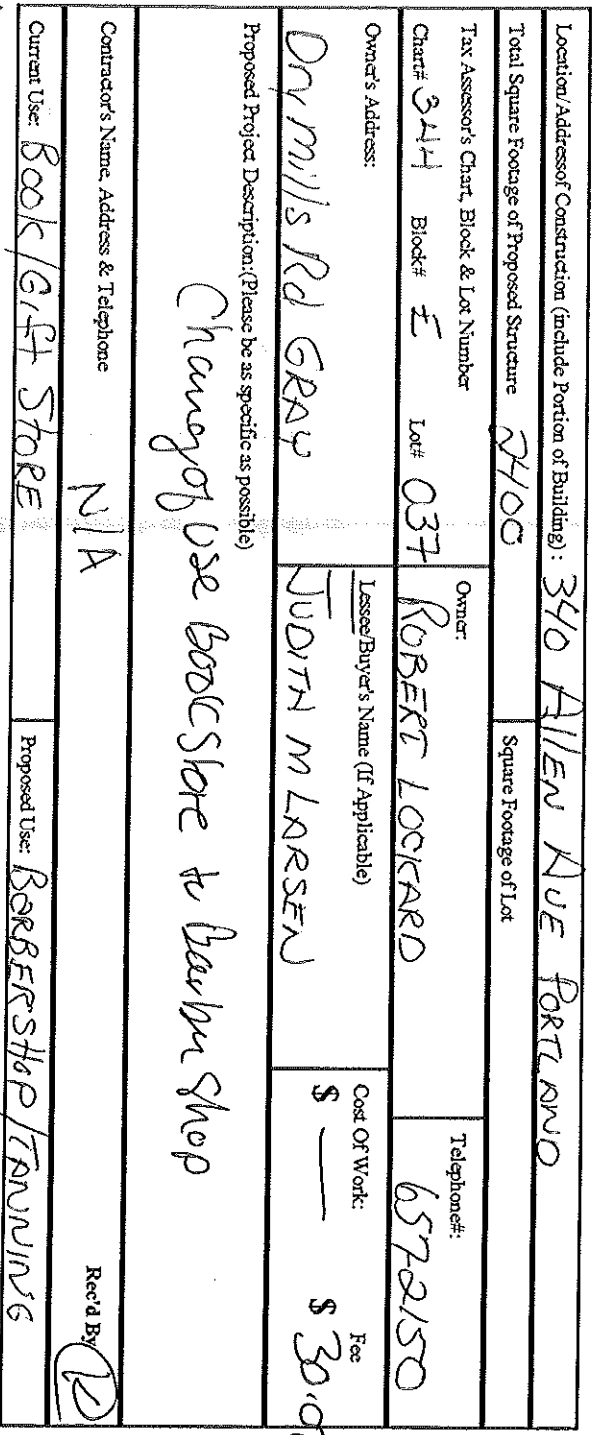 Location/Addressof Construction (include Portion of Building) : 340 AllEN AVE PORTLAND
Total Square Footage of Proposed Structure 2400 Square Footage of Lot
Tax Assessor's Chart, Block & Lot Number
Chart# 344 Block# E Lot# 037
Owner:
ROBERT LOCKARD
Telephone#:
6572150
Owner's Address:
Dry Mills Rd GRAY
Lessee/Buyer's Name (If Applicable)
JUDITH M LARSEN
Cost Of Work:
$ —
Fee
$ 30.0
Proposed Project Description:(Please be as specific as possible)
Change of use bookstore to Barber Shop
Contractor's Name, Address & Telephone N/A Rec'd By
Current Use: Book/Gift StoRE Proposed Use: BARBERSHOP/TANNING